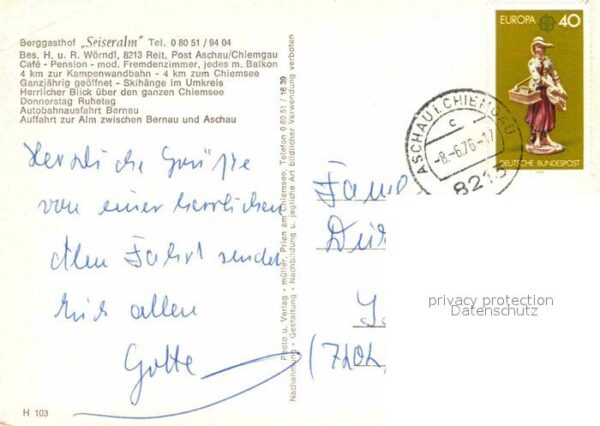 Berggasthof „Seiseralm" Tel. 0 80 51 / 94 04
Bes. H. u. R. Wörndl, 8213 Reit, Post Aschau/Chiemgau
Café - Pension - mod. Fremdenzimmer, jedes m. Balkon
4 km zur Kampenwandbahn - 4 km zum Chiemsee
Ganzjährig geöffnet - Skihänge im Umkreis
Herrlicher Blick über den ganzen Chiemsee
Donnerstag Ruhetag
Autobahnausfahrt Bernau
Auffahrt zur Alm zwischen Bernau und Aschau
Herzliche Grüße
von einer herrlichen
Fahrt sendet
Euch allen
Gotte
H 103
Photo u. Verlag - müller, Prien am Chiemsee, Telefon 0 80 51 / 16 39
Nachahmung - Gestaltung - Nachbildung u. jegliche Art bildlicher Verwendung verboten
EUROPA 40
DEUTSCHE BUNDESPOST
ASCHAU I. CHIEMGAU
c
-8.-6.76-17
8213
Fam
privacy protection
Datenschutz